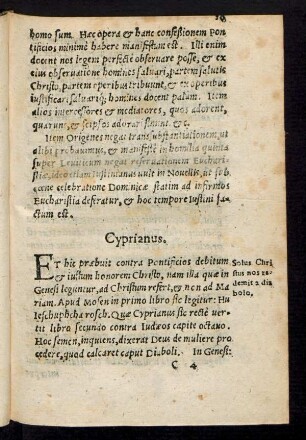 homo sum. Hæc opera & hanc confessionem Pon-
tificios minimè habere manifestum est. Illi enim
docent nos legem perfectè observare posse, & ex
eius observatione homines salvari, partem salutis
Christo, partem operibus tribuunt, & ex operibus
iustificari, salvariq́; homines docent palam. Item
alios intercessores & mediatores, quos adorent,
quærunt, & seipsos adorari sinunt &c.
Item Origenes negat transsubstantiationem, ut
alibi probavimus, & manifestè in homilia quinta
super Leviticum negat reservationem Euchari-
stiæ, ideo etiam Iustinianus vult in Novellis, ut sub
cœne celebratione Dominicæ statim ad infirmos
Eucharistia deferatur, & hoc tempore Iustini fa-
ctum est.
Cyprianus.
ET hic præbuit contra Pontificios debitum
& iustum honorem Christo, nam illa quæ in
Genesi leguntur, ad Christum refert, & non ad Ma-
riam. Apud Mosen in primo libro sic legitur: Hu
Ieschuphcha rosch. Quæ Cyprianus sic rectè ver-
tit libro secundo contra Iudæos capite octavo.
Hoc semen, inquiens, dixerat Deus de muliere pro-
cedere, quod calcaret caput Diaboli. In Genesi:
Solus Chri
stus nos re-
demit a dia
bolo.
C 4